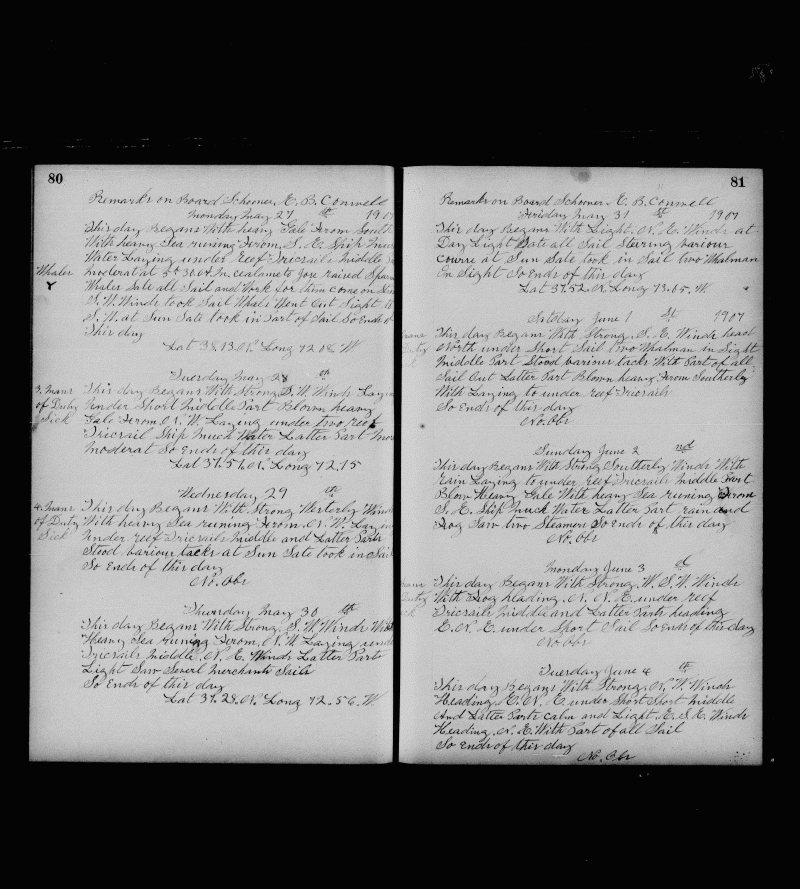 80
Remarks on Board Schooner, E. B. Conwell
Monday May 27 th 1907
This day Begans With heavy Gale From South
With heavy Sea runing From, S. E. Ship
Water Laying under Reef Tricsails Middle
moderat at
Whales
Whales Sate all Sail and Work for them Come on
S. W. Winds took Sail Whals Went Out Sight
S. W. at Sun Sate took in Part of Sail So Ends of
This day
Lat 38.13. N. Long 72.08. W
Tuesday May 28 th
3. Mans This day Begans With Strong S. W. Winds Laying
of Duty Under Short Middle Part Blown heavy
Sick Gale From, N. W. Laying under two Reef
Tricsail Ship Much Water Latter Part more
Moderat So Ends of this day
Lat 37.51. N. Long 72.15
Wednesday 29 th
4. Mans This day Begans With Strong Westerly Winds
of Duty With heavy Sea runing From, N. W. Laying
Sick Under reef Tricsails Middle and Latter Parts
Stood barious tacks at Sun Sate took in Sail
So Ends of this day
No. Obs
Thursday May 30 th
This day Begans With Strong, S. W Winds With
Heavy Sea runing From, N. W. Laying under
Tricsails Middle, N. E. Winds Latter Parts
Light Saw Severl Merchants Sails
So Ends of this day
Lat 37.28. N. Long 72.56. W.
81
Remarks on Board Schooner, E. B. Conwell
Friday May 31 St 1907
This day Begans With Light, N. E. Winds at
Day Light Sate all Sail Stering barious
Course at Sun Sate took in Sail two Whalman
En Sight So Ends of this day
Lat 37.52. N. Long 73.05. W
June 1 St 1907
This day Begans With Strong, S. E. Winds head
North under Short Sail two Whalman in Sight
Middle Part Stood barious tacks With Part of all
Sail Out Latter Part Blown heavy From Southerly
With Laying to under reef Tricsails
So Ends of this day
No. Obs
Sunday June 2 nd
This day Begans With Strong Southerly Winds With
rain Laying to under reef Tricsails Middle Part
Blow Heavy Gale With heavy Sea runing From
S. E. Ship Much Water Latter Part, rain and
Frog Saw two Steamers So Ends of this day
No. Obs
Monday June 3 d
This day Begans With Strong, W. S. W. Winds
With Frog heading, N. N. E. under reef
Tricsails Middle and Latter Parts heading
E. N. E. under Short Sail So Ends of this day
No Obs
Tuesday June 4 th
This day Begans With Strong, N. W. Winds
Heading, E. N. E under Short Short Middle
And Latter Parts Calm and Light, E. S. E. Winds
Heading, N. E. With Part of all Sail
So Ends of this day
No. Obs